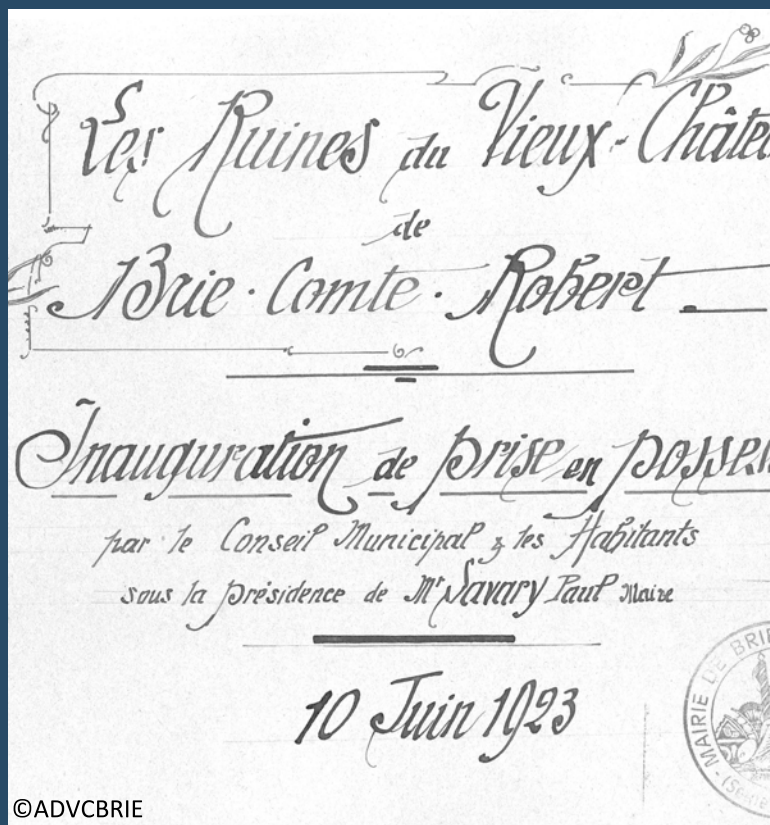 Les Ruines du Vieux-Châte
de
Brie-Comte-Robert
Inauguration de prise en posses
par le Conseil Municipal & les Habitants
sous la présidence de Mr Savary Paul Maire
10 Juin 1923
MAIRIE DE BRIE
(Seine
©ADVCBRIE